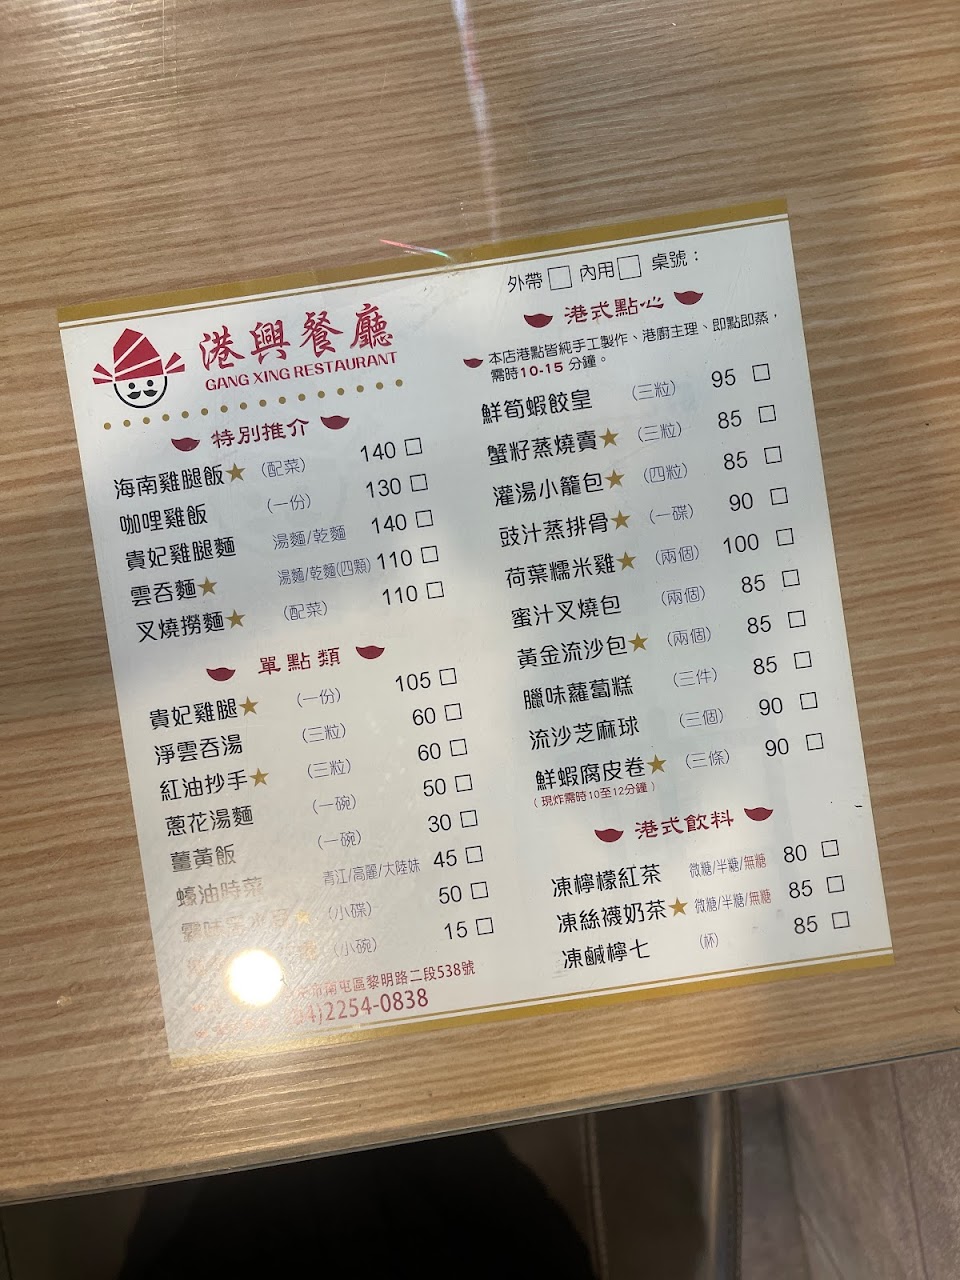 港興餐廳
GANG XING RESTAURANT
特別推介
海南雞腿飯★ (配菜) 140 □
咖哩雞飯 (一份) 130 □
貴妃雞腿麵 湯麵/乾麵 140 □
雲吞麵★ 湯麵/乾麵(四顆) 110 □
叉燒撈麵★ (配菜) 110 □
單點類
貴妃雞腿★ (一份) 105 □
淨雲吞湯 (三粒) 60 □
紅油抄手★ (三粒) 60 □
蔥花湯麵 (一碗) 50 □
薑黃飯 (一碗) 30 □
蠔油時菜 青江/高麗/大陸妹 45 □
★ (小碟) 50 □
(小碗) 15 □
市南屯區黎明路二段538號
2254-0838
外帶 □ 內用 □ 桌號：
港式點心
本店港點皆純手工製作、港廚主理、即點即蒸，
需時10-15 分鐘。
鮮筍蝦餃皇 (三粒) 95 □
蟹籽蒸燒賣★ (三粒) 85 □
灌湯小籠包★ (四粒) 85 □
豉汁蒸排骨★ (一碟) 90 □
荷葉糯米雞★ (兩個) 100 □
蜜汁叉燒包 (兩個) 85 □
黃金流沙包★ (兩個) 85 □
臘味蘿蔔糕 (三件) 85 □
流沙芝麻球 (三個) 90 □
鮮蝦腐皮卷★ (三條) 90 □
( 現炸需時10至12分鐘 )
港式飲料
凍檸檬紅茶 微糖/半糖/無糖 80 □
凍絲襪奶茶★ 微糖/半糖/無糖 85 □
凍鹹檸七 (杯) 85 □